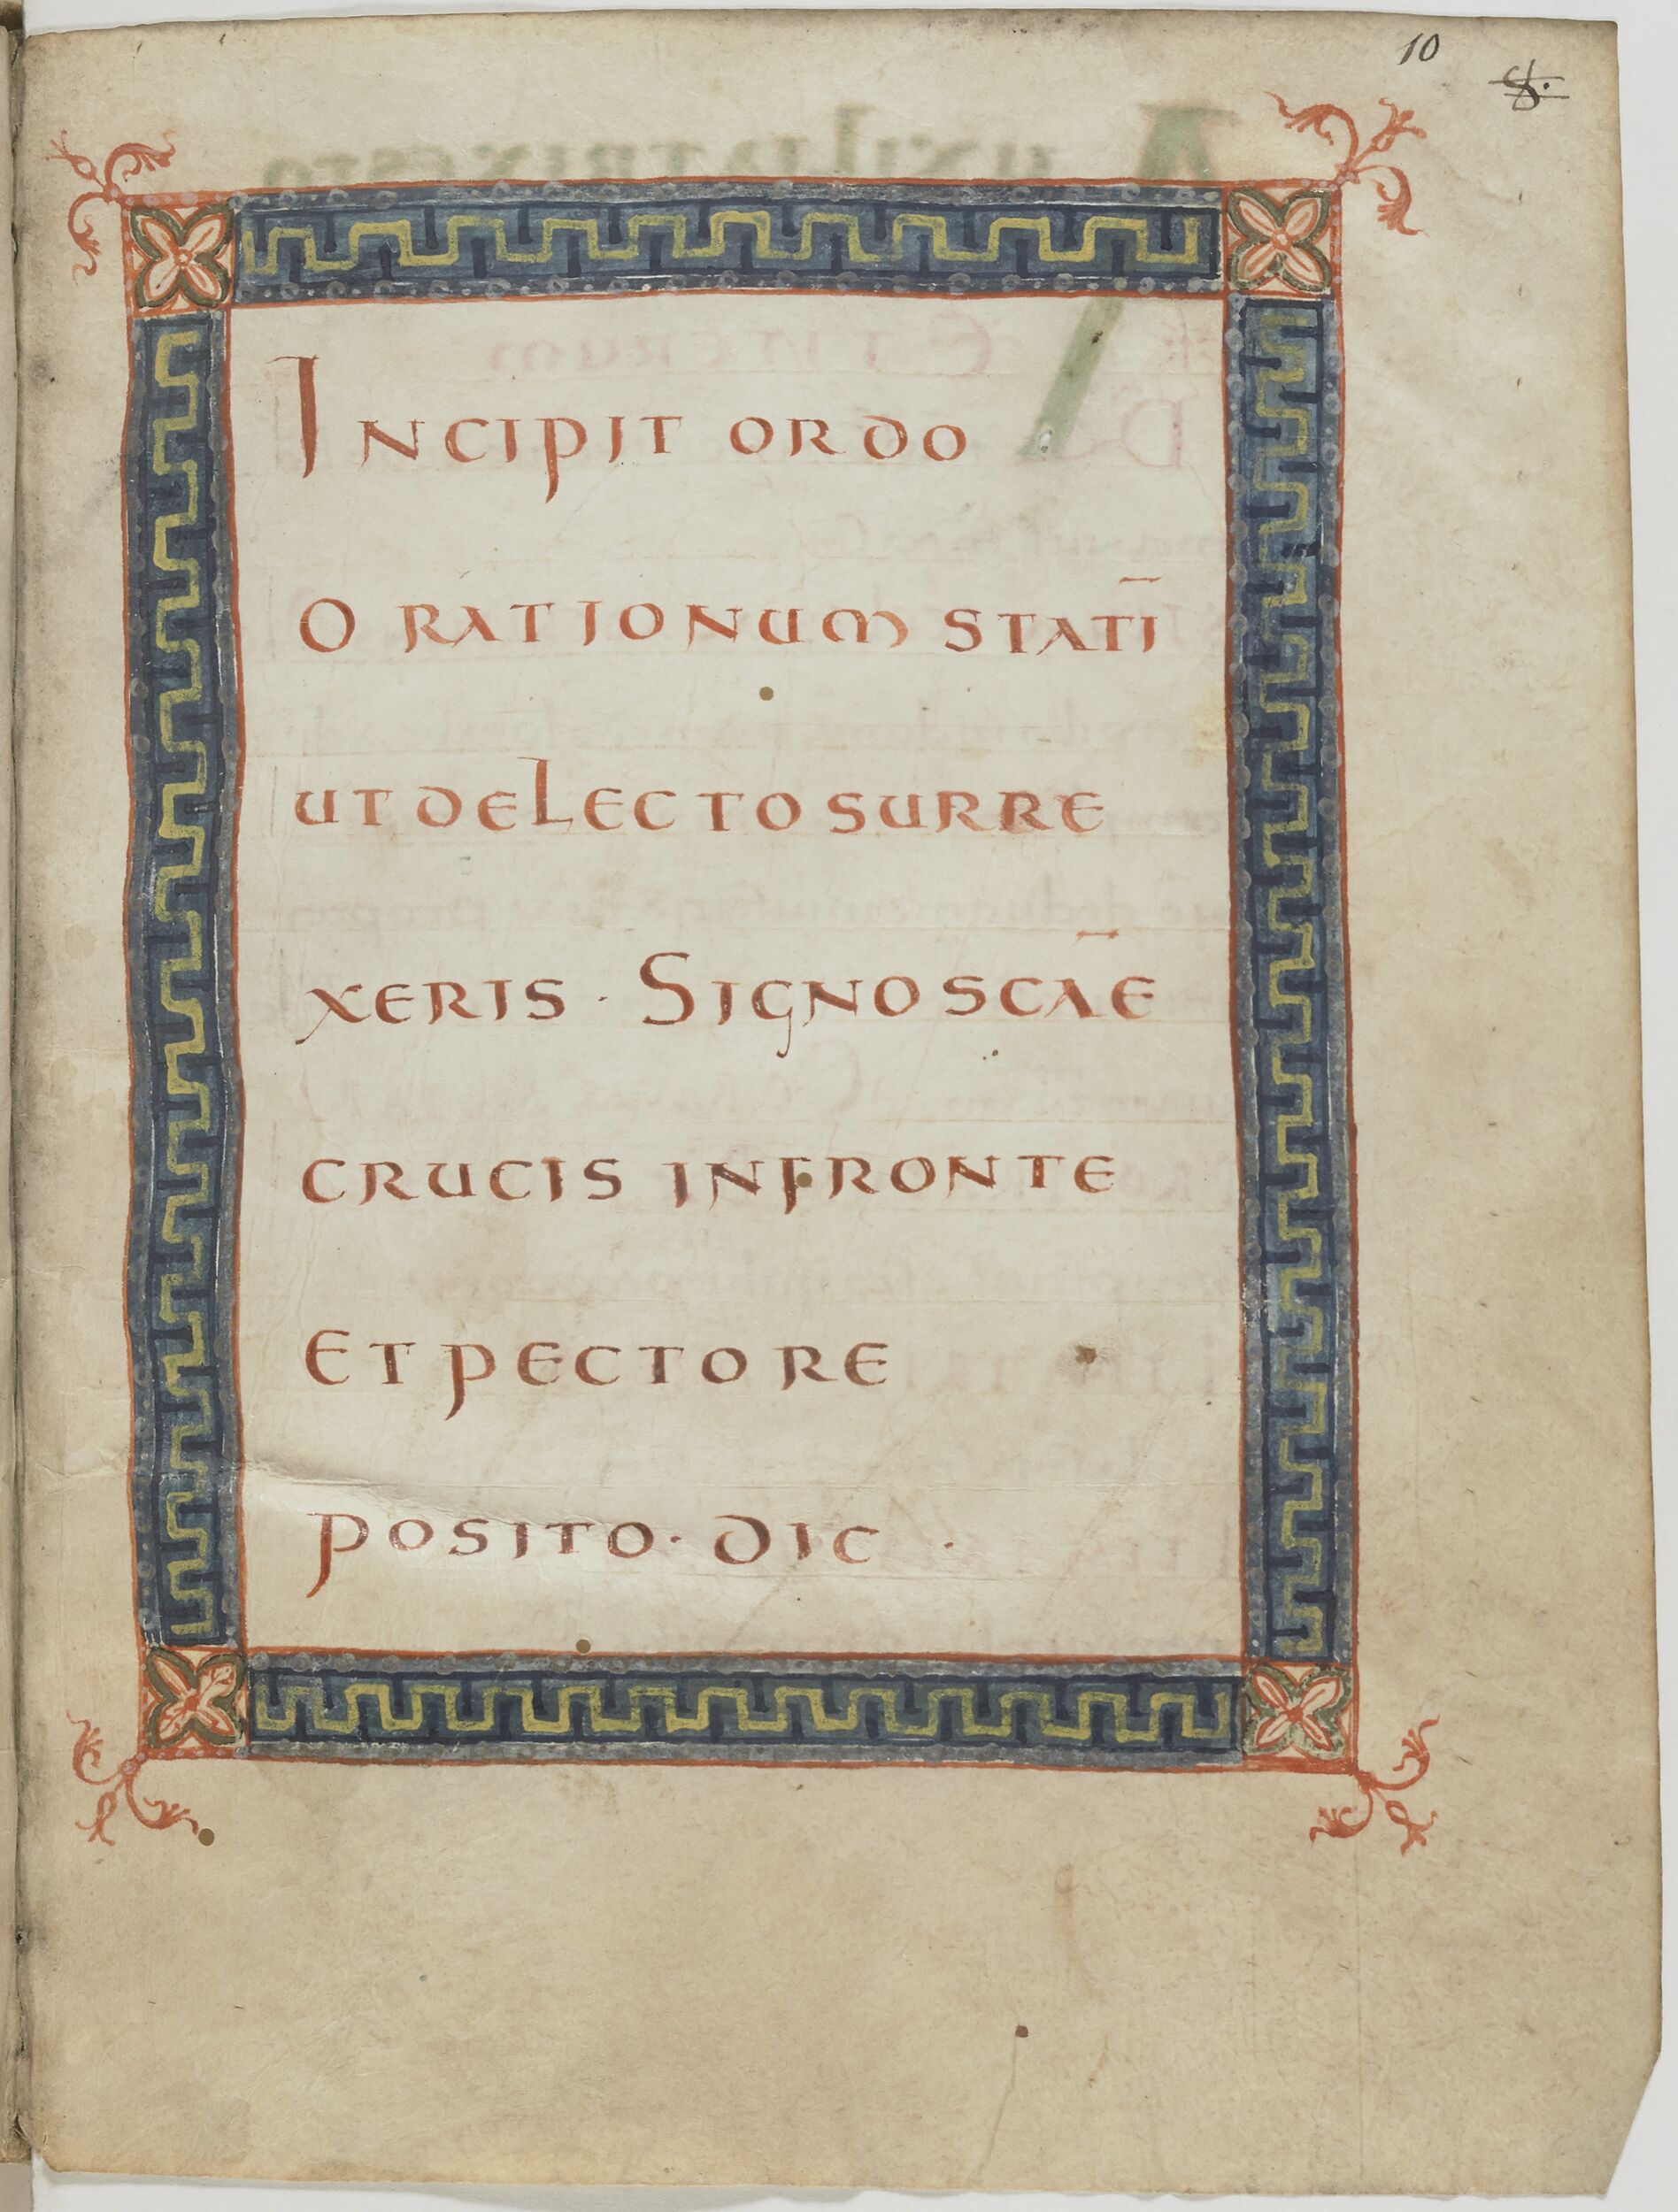 10
8.
INCIPIT ORDO
ORATIONUM STATI̅
UT DE LECTO SURRE
XERIS · SIGNO SCAE̅
CRUCIS IN FRONTE
ET PECTORE
POSITO · DIC ·